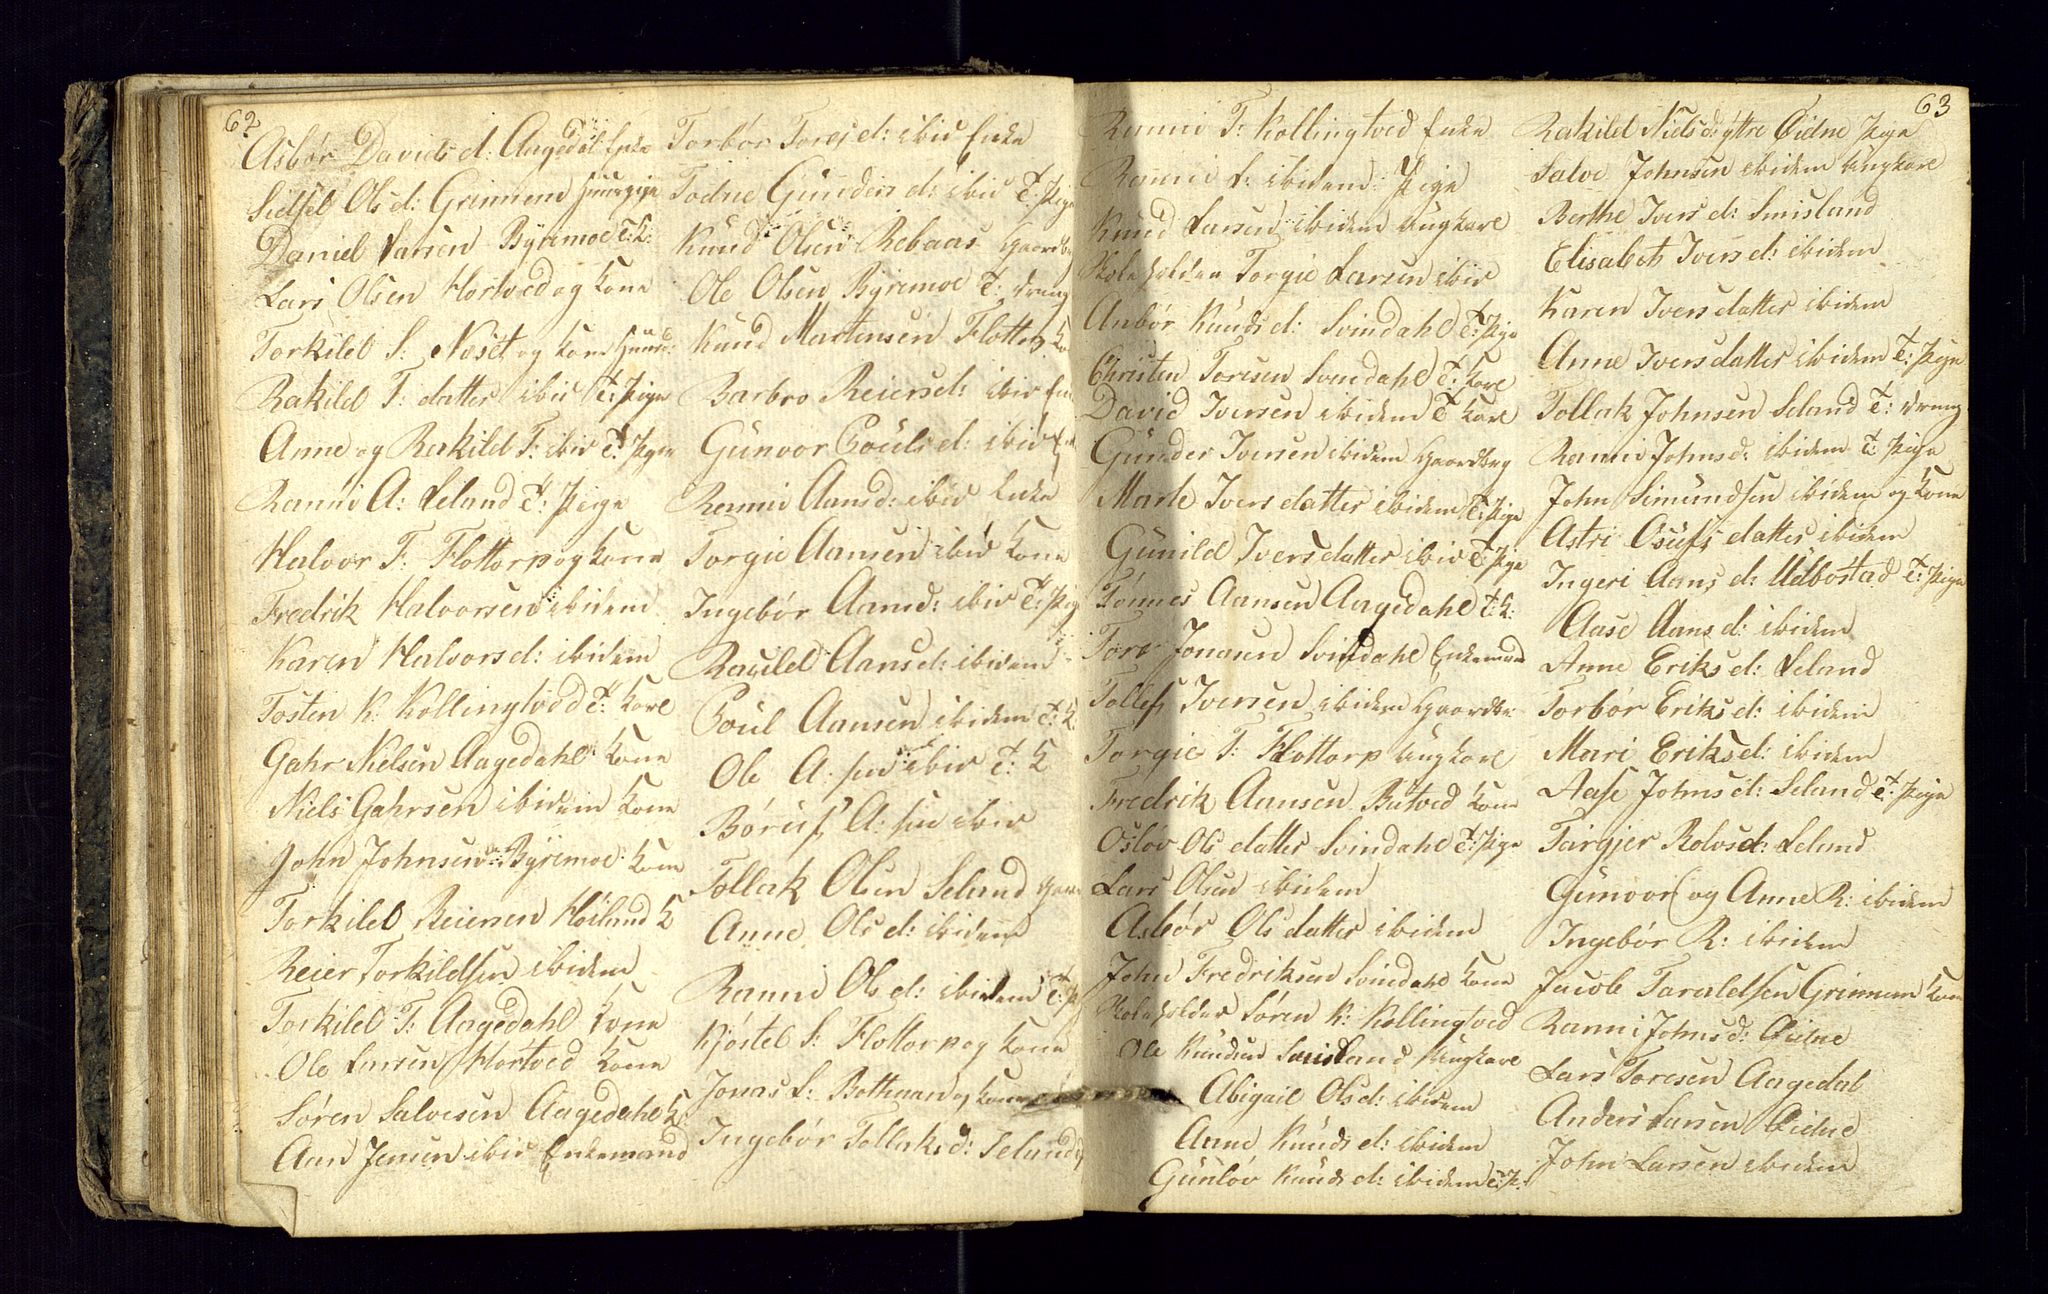 62
Asbør Davids d: Aagedal Enke
Sidsel Ols d: Grimnem Huuspige
Daniel Larsen Byremoe T: K:
Lars Olsen Hortved og Kone
Torkild S: Neset og Kone Huusm:
Rakild T: datter ibid T: Pige
Anne og Rakild T: ibid T: Pige
Ranni A: Leland T: Pige
Halvor F: Flottorp og Kone
Fredrik Halvorsen ibidem
Karen Halvors d: ibidem
Tosten K: Kollingtved T: Karl
Gahr Nielsen Aagedahl Kone
Niels Gahrsen ibidem Kone
John Johnsen Byremoe Kone
Torkild Reiersen Høiland K
Reier Torkildsen ibidem
Torkild T: Aagedahl Kone
Ole Larsen Hortved Kone
Søren Salvesen Aagedahl K:
Aan Jensen ibid Enkemand
Torbør Tores d: ibid Enke
Todne Gunders d: ibid T: Pige
Knud Olsen Rebaas Gaardb
Ole Olsen Byremoe T: Dreng
Knud Mortensen Flottorp Ko
Barbro Reiers d: ibid En
Gunvor Pouls d: ibid En
Ranni Aans d: ibid Enke
Torgie Aansen ibid Kone
Ingebør Aansd: ibid T: Pig
Raqild Aans d: ibidem
Poul Aansen ibidem T: K
Ole A: sen ibid T: K
Børuf A: sen ibid
Tollak Olsen Seland Gaar
Anne Ols d: ibidem
Ranni Ols d: ibidem T: P
Kjøstel S: Flottorp og Kone
Jonas L: Bothnan og Kone
Ingebør Tollaks d: Seland
63
Ranni T: Kollingtved Enke
Ranni L: ibidem Pige
Knud Larsen ibidem Ungkarl
Skoleholder Torgie Larsen ibid
Anbør Knuds d: Svindahl T: Pige
Christen Toresen Svindahl T: Karl
David Iversen ibidem T Karl
Gunder Iversen ibidem Gaardbrg
Marte Ivers datter ibidem T: Pige
Gunild Ivers datter ibid T: Pige
Tønnes Aansen Aagedahl T: K:
Tore Jonasen Svindahl Enkemand
Tollef Iversen ibidem Gaardbr
Torgie T: Flottorp Ungkarl
Fredrik Aansen Butved Kone
Osløv Ols datter Svindahl T: Pige
Lars Olsen ibidem
Asbør Ols datter ibidem
John Fredriksen Svindahl Kone
Skoleholder Søren K: Kollingtved
Ole Knudsen Smisland Ungkarl
Abigail Ols d: ibidem
Anne Knuds d: ibidem
Gunløv Knuds d: ibidem T: P:
Rakild Niels d: yttre Eidne Pige
Salve Johnsen ibidem Ungkarl
Berthe Ivers d: Smisland
Elisabeth Ivers d: ibidem
Karen Ivers datter ibidem
Anne Ivers datter ibidem T: Pige
Tollak Johnsen Seland T: Dreng
Ranni Johns d: ibidem T: Pige
John Simundsen ibidem og Kone
Astri Osufs datter ibidem
Ingeri Aans d: Ubostad T: Pige
Aase Aans d: ibidem
Anne Eriks d: Leland
Torbør Eriks d: ibidem
Mari Eriks d: ibidem
Aase Johns d: Seland T: Pige
Targjer Rolvs d: Leland
Gunvor og Anne R: ibidem
Ingebør R: ibidem
Jacob Taraldsen Grimnem Kone
Ranni Johns d: Eidne
Lars Toresen Aagedal
Anders Larsen Eidne
John Larsen ibidem